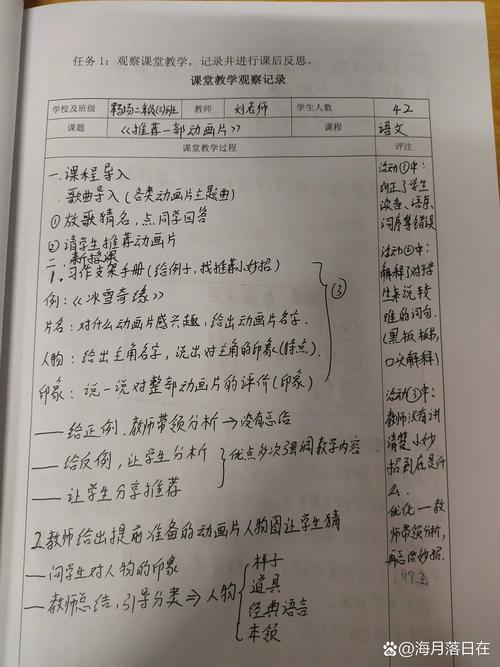 任务1：观察课堂教学，记录并进行课后反思。
课堂教学观察记录
学校及班级 二年级(2)班 教师 刘老师 学生人数 42
课题 《推荐一部动画片》 课程 语文
课堂教学过程 评注
一.课程导入
歌曲导入(各类动画片主题曲)
①放歌猜名,点同学回答
②请学生推荐动画片
二.新授课
1.习作支架手册(给例子,找推荐小妙招)
例:《冰雪奇缘》
片名:对什么动画片感兴趣,给出动画片名字.
人物:给出主角名字,说出对主角的印象(特点).
印象:说一说对整部动画片的评价(印象)
③
——给正例,教师带领分析→没有总结
——给反例,让学生分析
——让学生分享推荐
优点多次强调教学内容
2.教师给出提前准备的动画片人物图让学生猜
——问学生对人物的印象
——教师总结,引导分类→人物
样子
道具
经典语言
本领
活动①中:
纠正了学生
读音、语序、
词序等错误
活动②中:
解释了对学
生来说较
难的词句.
(黑板板书,
口头解释)
活动③中:
教师没有讲
清楚小妙
招到底是什
么.
优化—教
师带领分析,
再总结妙招.
@海月落日在